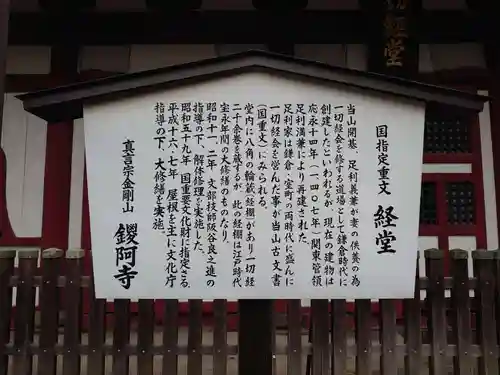 経堂
国指定重文 経堂
当山開基、足利義兼が妻の供養の為
一切経会を修する道場として鎌倉時代に
創建したといわれるが、現在の建物は
応永十四年(一、四〇七年)関東管領
足利満兼により再建された。
足利家は鎌倉・室町の両時代に盛んに
一切経会を営んだ事が古文書
(国重文)にみられる。
堂内に八角の輪蔵経棚があり一切経
二千余巻を蔵するが、此の経棚は江戸時代
宝永年間の大修繕のものなり。
昭和十一、二年 文部技師阪谷良之進の
指導の下、解体修理を実施した。
昭和五十九年、国重要文化財に指定さる。
平成十六、七年、屋根を主に文化庁
指導の下、大修繕を実施。
真言宗金剛山 鑁阿寺